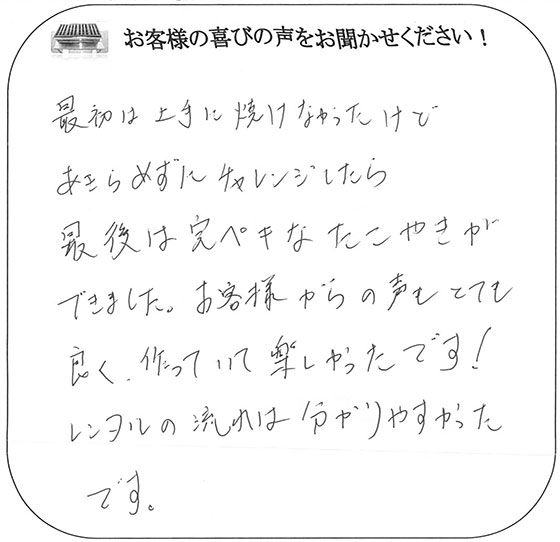 お客様の喜びの声をお聞かせください！
最初は上手に焼けなかったけど
あきらめずにチャレンジしたら
最後は完ペキなたこやきが
できました。お客様からの声もとても
良く、作っていて楽しかったです！
レンタルの流れは分かりやすかった
です。